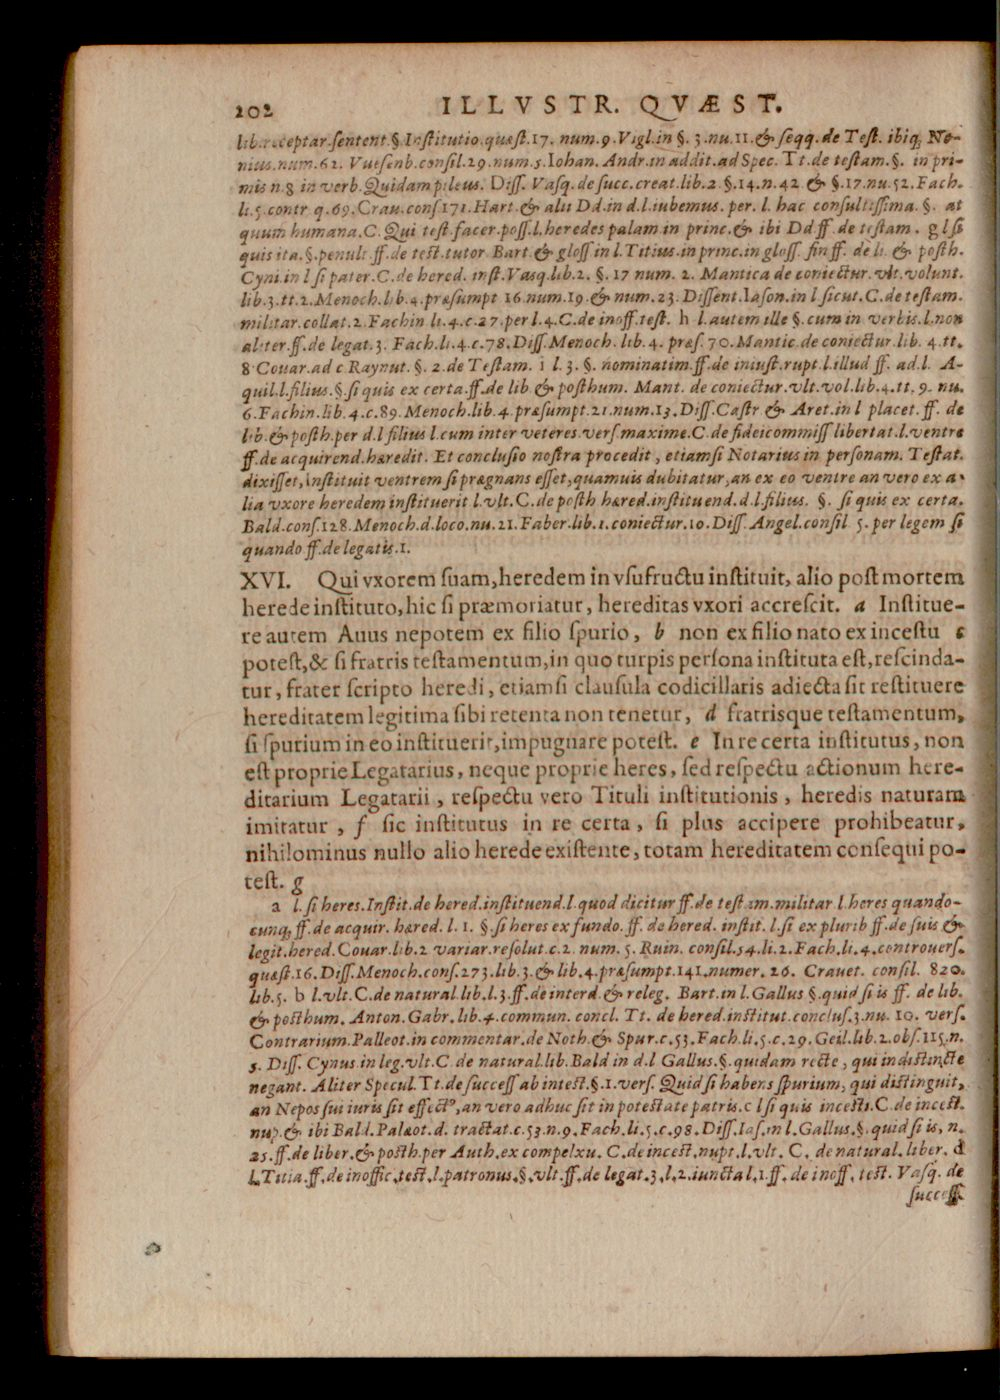 202 ILLVSTR. QVÆST.
lib.receptar.ſentent.§.Inſtitutio.quæſt.17. num.9.Vigl.in §. 3.nu.11.& ſeqq.de Teſt. ibiq; No-
nius.num.62. Vueſenb.conſil.29.num.5.Iohan. Andr.in addit.ad Spec. Tt.de teſtam.§. in pri-
mis n.8 in verb.Quidam pileus. Diſſ. Vaſq.de ſucc.creat.lib.2 §.14.n.42 & §.17.nu.52.Fach.
li.5.contr q.69.Crau.conſ 171.Hart.& alii Dd.in d.l.iubemus. per. l. hac conſultiſſima. §. at
quum humana.C.Qui teſt.facer.poſſ.l.heredes palam in princ.& ibi Dd ff.de teſtam. g l ſi
quis ita.§.penult ff.de teſt.tutor Bart.& gloſſ in l Titius.in princ.in gloſſ. fin ff. de li. & poſth.
Cyni.in l ſi pater.C.de hered. inſt.Vaſq.lib.2. §.17 num. 2. Mantica de coniectur.vlt.volunt.
lib.3.tt.2.Menoch.lib.4.præſumpt 16.num.19.& num.23.Diſſent.Iaſon.in l ſicut.C.de teſtam.
militar.collat.2.Fachin li.4.c.27.per l.4.C.de inoff.teſt. h l.autem ille §.cum in verbis.l.non
aliter.ff.de legat.3. Fach.li.4.c.78.Diſſ.Menoch.lib.4. præſ.70.Mantic.de coniectur.lib. 4.tt.
8 Couar.ad c Raynut. §. 2.de Teſtam. i l. 3.§. nominatim.ff.de iniuſt.rupt.l.illud ff. ad.l. A-
quil.l.filius.§.ſi quis ex certa.ff.de lib & poſthum. Mant. de coniectur.vlt.vol.lib.4.tt. 9. nu.
6.Fachin.lib.4.c.89.Menoch.lib.4.præſumpt.21.num.13.Diſſ.Caſtr & Aret.in l placet.ff. de
lib.& poſth.per d.l filius l.cum inter veteres.verſ.maxime.C.de fideicommiſſ libertat.l.ventre
ff.de acquirend.hæredit. Et concluſio noſtra procedit, etiamſi Notarius in perſonam. Teſtat.
dixiſſet,inſtituit ventrem ſi prægnans eſſet,quamuis dubitatur,an ex eo ventre an vero ex a-
lia vxore heredem inſtituerit l.vlt.C.de poſth hæred.inſtituend.d.l.filius. §. ſi quis ex certa.
Bald.conſ.128.Menoch.d.loco.nu.21.Faber.lib.1.coniectur.10.Diſſ.Angel.conſil 5.per legem ſi
quando ff.de legatis.1.
XVI. Qui vxorem ſuam,heredem in vſufructu inſtituit, alio poſt mortem
herede inſtituto,hic ſi præmoriatur, hereditas vxori accreſcit. a Inſtitue-
re autem Auus nepotem ex filio ſpurio, b non ex filio nato ex inceſtu c
poteſt,& ſi fratris teſtamentum,in quo turpis perſona inſtituta eſt,reſcinda-
tur, frater ſcripto heredi, etiamſi clauſula codicillaris adiecta ſit reſtituere
hereditatem legitima ſibi retenta non tenetur, d fratrisque teſtamentum,
ſi ſpurium in eo inſtituerit,impugnare poteſt. e In re certa inſtitutus, non
eſt proprie Legatarius, neque proprie heres, ſed reſpectu actionum here-
ditarium Legatarii, reſpectu vero Tituli inſtitutionis, heredis naturam
imitatur, f ſic inſtitutus in re certa, ſi plus accipere prohibeatur,
nihilominus nullo alio herede exiſtente, totam hereditatem conſequi po-
teſt. g
a l.ſi heres.Inſtit.de hered.inſtituend.l.quod dicitur ff.de teſtam.militar l.heres quando-
cunq; ff.de acquir. hæred. l. 1. §.ſi heres ex fundo. ff. de hered. inſtit. l.ſi ex plurib ff.de ſuis &
legit.hered.Couar.lib.2 variar.reſolut.c.2. num. 5. Ruin. conſil.54.li.2.Fach.li.4.controuerſ.
quæſt.16.Diſſ.Menoch.conſ.273.lib.3.& lib.4.præſumpt.141.numer. 26. Crauet. conſil. 820.
lib.5. b l.vlt.C.de natural.lib.l.3.ff.de interd.& releg. Bart.in l.Gallus §.quid ſi is ff. de lib.
& poſthum. Anton.Gabr.lib.4.commun. concl. Tt. de hered.inſtitut.concluſ.3.nu. 10. verſ.
Contrarium.Palleot.in commentar.de Noth.& Spur.c.53.Fach.li.5.c.29.Geil.lib.2.obſ.115.n.
5. Diſſ. Cynus in leg.vlt.C.de natural.lib.Bald in d.l Gallus.§.quidam recte, qui indiſtincte
negant. Aliter Specul.Tt.de ſucceſſ ab inteſt.§.1.verſ.Quid ſi habens ſpurium, qui diſtinguit,
an Nepos ſui iuris ſit effectꝰ,an vero adhuc ſit in poteſtate patris.c l ſi quis inceſti.C.de inceſt.
nup.& ibi Bald.Palæot.d. tractat.c.53.n.9.Fach.li.5.c.98.Diſſ.Iaſ.in l.Gallus.§.quid ſi is, n.
25.ff.de liber.& poſth.per Auth.ex compelxu. C.de inceſt.nupt.l.vlt. C. de natural. liber. d
l.Titia.ff.de inoffic.teſt.l.patronus.§.vlt.ff.de legat.3.l.2.iuncta l.1.ff.de inoff. teſt. Vaſq. de
ſucceſſ.